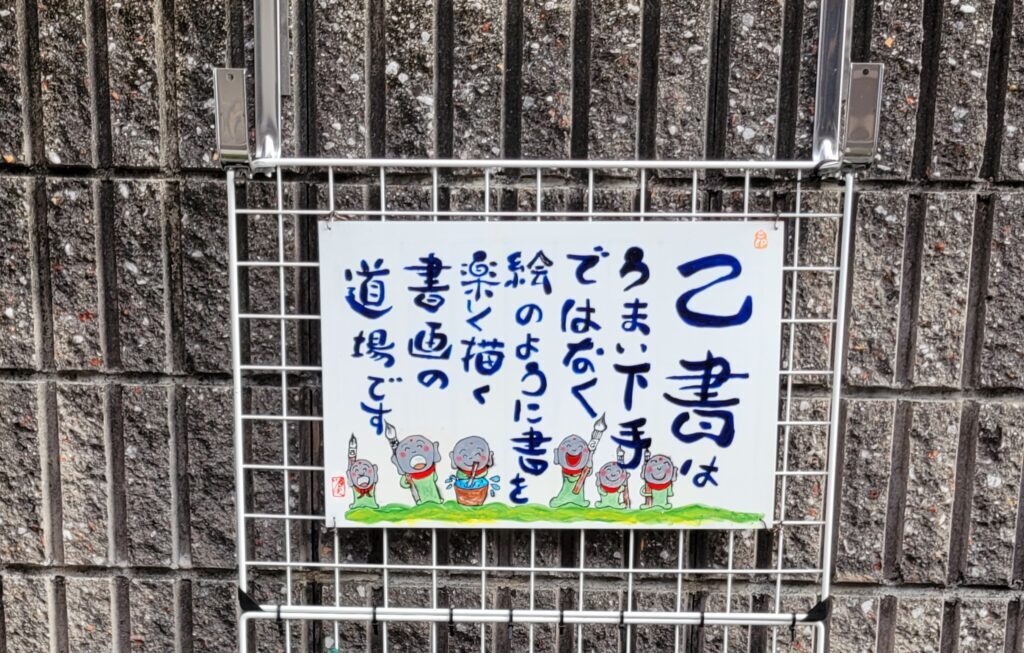 乙書は
うまい下手
ではなく
絵のように書を
楽しく描く
書画の
道場です